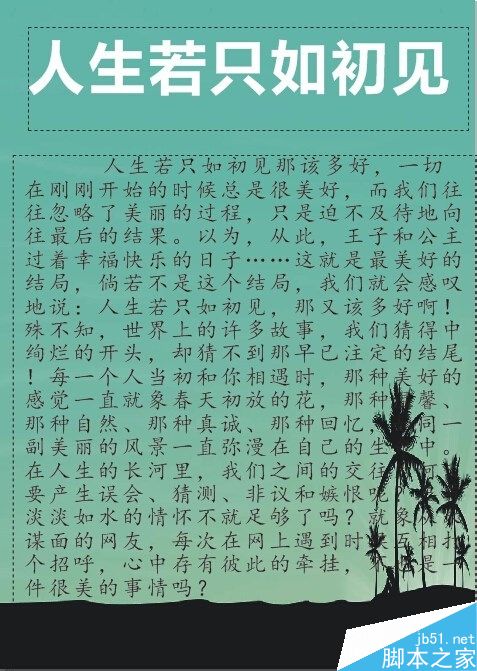 人生若只如初见
人生若只如初见那该多好，一切
在刚刚开始的时候总是很美好，而我们往
往忽略了美丽的过程，只是迫不及待地向
往最后的结果。以为，从此，王子和公主
过着幸福快乐的日子……这就是最美好的
结局，倘若不是这个结局，我们就会感叹
地说：人生若只如初见，那又该多好啊！
殊不知，世界上的许多故事，我们猜得中
绚烂的开头，却猜不到那早已注定的结尾
！每一个人当初和你相遇时，那种美好的
感觉一直就象春天初放的花，那种 馨、
那种自然、那种真诚、那种回忆， 同一
副美丽的风景一直弥漫在自己的生 中。
在人生的长河里，我们之间的交往 何
要产生误会、猜测、非议和嫉恨呢
淡淡如水的情怀不就足够了吗？就象
谋面的网友，每次在网上遇到时 互相打
个招呼，心中存有彼此的牵挂， 是一
件很美的事情吗？
jb51.net
脚本之家